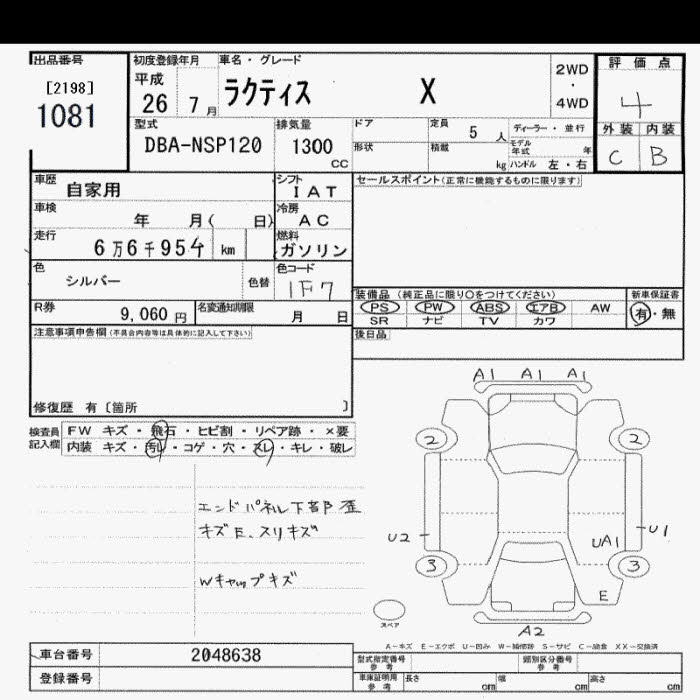 出品番号 初度登録年月 車名・グレード 評価点
[2198] 平成 2WD
1081 26 7月 ラクティス X ・ 4
4WD
型式 排気量 ドア 定員 5人 ディーラー・並行 外装 内装
DBA-NSP120 1300 CC 形状 積載 kg モデル年式 年 C B
ハンドル 左・右
車歴 自家用 シフト IAT セールスポイント(正常に機能するものに限ります)
車検 年 月( 日) 冷房 AC
走行 6万6千954 km 燃料 ガソリン
色 シルバー 色替 色コード 1F7
装備品 (純正品に限り○をつけてください) 新車保証書
R券 9,060円 名変通知期限 月 日 PS PW ABS エアB AW 有・無
SR ナビ TV カワ
注意事項申告欄(不具合内容等は具体的に記入して下さい) 後日品
修復歴 有〔箇所 〕
検査員記入欄 FW キズ・飛石・ヒビ割・リペア跡・×要
内装 キズ・汚レ・コゲ・穴・スレ・キレ・破レ
A1 A1 A1
2 2
エンドパネル下部歪
キズE、スリキズ
U2 UA1 U1
3 3
Wキャップキズ
E
スペア
A2
A-キズ E-エクボ U-凹み W-補修跡 S-サビ C-腐食 XX-交換済
車台番号 2048638 型式指定番号 参考 類別区分番号 参考
登録番号 車庫証明用 参考 長さ cm 幅 cm 高さ cm